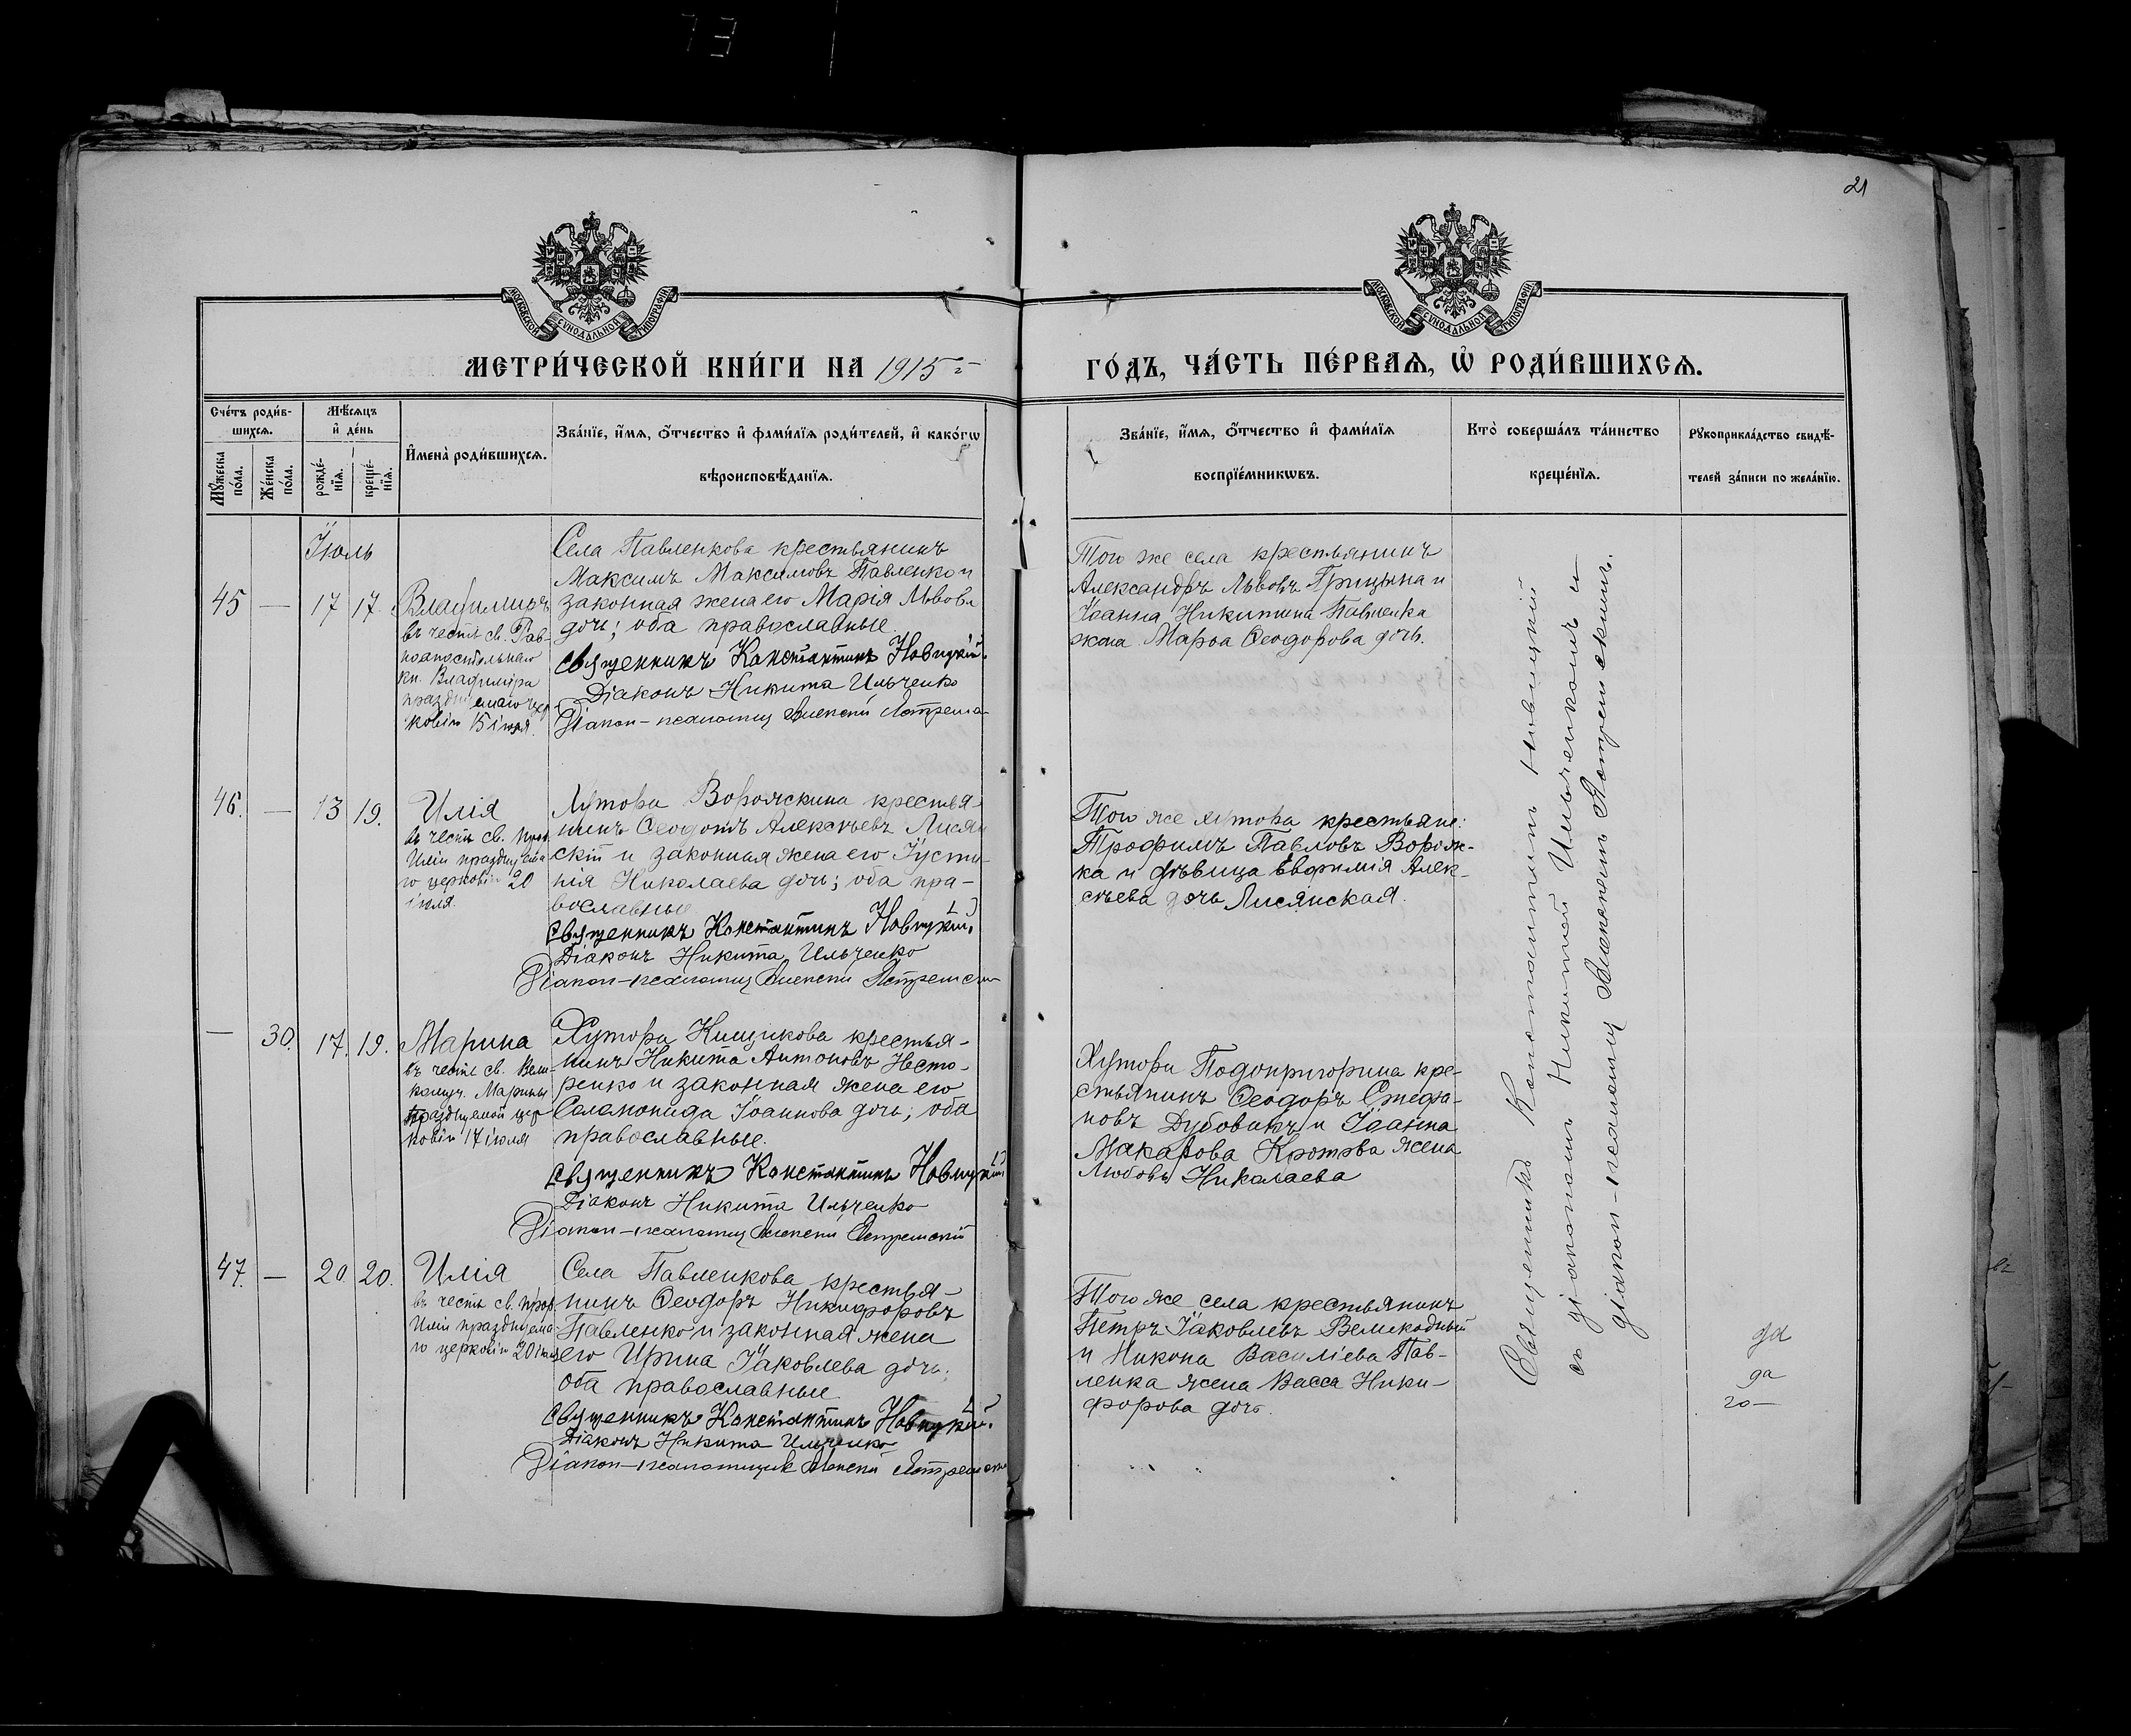 21
МОСКОВСКОЙ СѴНОДАЛЬНОЙ ТИПОГРАФІИ
МОСКОВСКОЙ СѴНОДАЛЬНОЙ ТИПОГРАФІИ
МЕТРИ́ЧЕСКОЙ КНИ́ГИ НА 1915 г.
ГО́ДЪ, ЧА́СТЬ ПЕ́РВАѦ, Ѡ РОДИ́ВШИХСѦ.
Сче́тъ роди́в-
шихсѧ.
Мꙋ́жеска
по́ла.
Же́нска
по́ла.
Мѣ́сѧцъ
и де́нь
рожде́-
нїѧ.
креще́-
нїѧ.
Имена̀ роди́вшихсѧ.
Зва́нїе, и́мѧ, о́тчество и фами́лїѧ роди́телей, и како́гѡ
вѣроисповѣ́данїѧ.
Зва́нїе, и́мѧ, о́тчество и фами́лїѧ
воспрїе́мникѡвъ.
Кто̀ соверша́лъ та́инство
креще́нїѧ.
Рꙋкоприкла́дство свидѣ́-
телей за́писи по жела́нїю.
Іюль
45 — 17 17.
Владиміръ
въ честь св. Рав-
ноапостольнаго
кн. Владиміра
празднуемаго цер
ковію 15 іюля.
Села Павленкова крестьянинъ
Максимъ Максимовъ Павленко и
законная жена его Марія Львова
дочь; оба православные.
Священникъ Константинъ Новицкій.
Діаконъ Никита Ильченко
Діакон-псаломщ Алексѣй
Того же села крестьянинъ
Александръ Львовъ Грицына и
Іоанна Никитина Павленка
жена Марѳа Ѳеодорова дочь.
46. — 13 19.
Илія
въ честь св. прор.
Иліи празднуема
го церковію 20
іюля.
Хутора Ворожкина крестья-
нинъ Ѳеодотъ Алексѣевъ Лисян
скій и законная жена его Іусти-
нія Николаева дочь; оба пра-
вославные
Священникъ Константинъ Новицкій.
Діаконъ Никита Ильченко
Діакон-псаломщ Алексѣй
Того же хутора крестьяне:
Трофимъ Павловъ Ворож-
ка и дѣвица Евфимія Алек-
сѣева дочь Лисянская.
— 30. 17. 19.
Марина
въ честь св. Вели-
комуч. Марины
празднуемой цер
ковію 17 іюля
Хутора Кищикова крестья-
нинъ Никита Антоновъ Несте-
ренко и законная жена его
Соломонида Іоаннова дочь; оба
православные.
Священникъ Константинъ Новицкій
Діаконъ Никита Ильченко
Діакон-псаломщ Алексѣй
Хутора Подопригорина кре-
стьянинъ Ѳеодоръ Стефа-
новъ Дубовикъ и Іоанна
Макарова Кротова жена
Любовь Николаева
47. — 20. 20.
Илія
въ честь св. прор.
Иліи празднуема-
го церковію 20 іюля
Села Павленкова крестья-
нинъ Ѳеодоръ Никифоровъ
Павленко и законная жена
его Ирина Іаковлева дочь;
оба православные
Священникъ Константинъ Новицкій.
Діаконъ Никита Ильченко
Діакон-псаломщик Алексѣй
Того же села крестьянинъ
Петръ Іаковлевъ Великодный
и Никона Василіева Пав-
ленка жена Васса Ники-
форова дочь.
Священникъ Константинъ Новицкій
съ діакономъ Никитой Ильченкомъ и
діакон-псаломщ Алексѣемъ